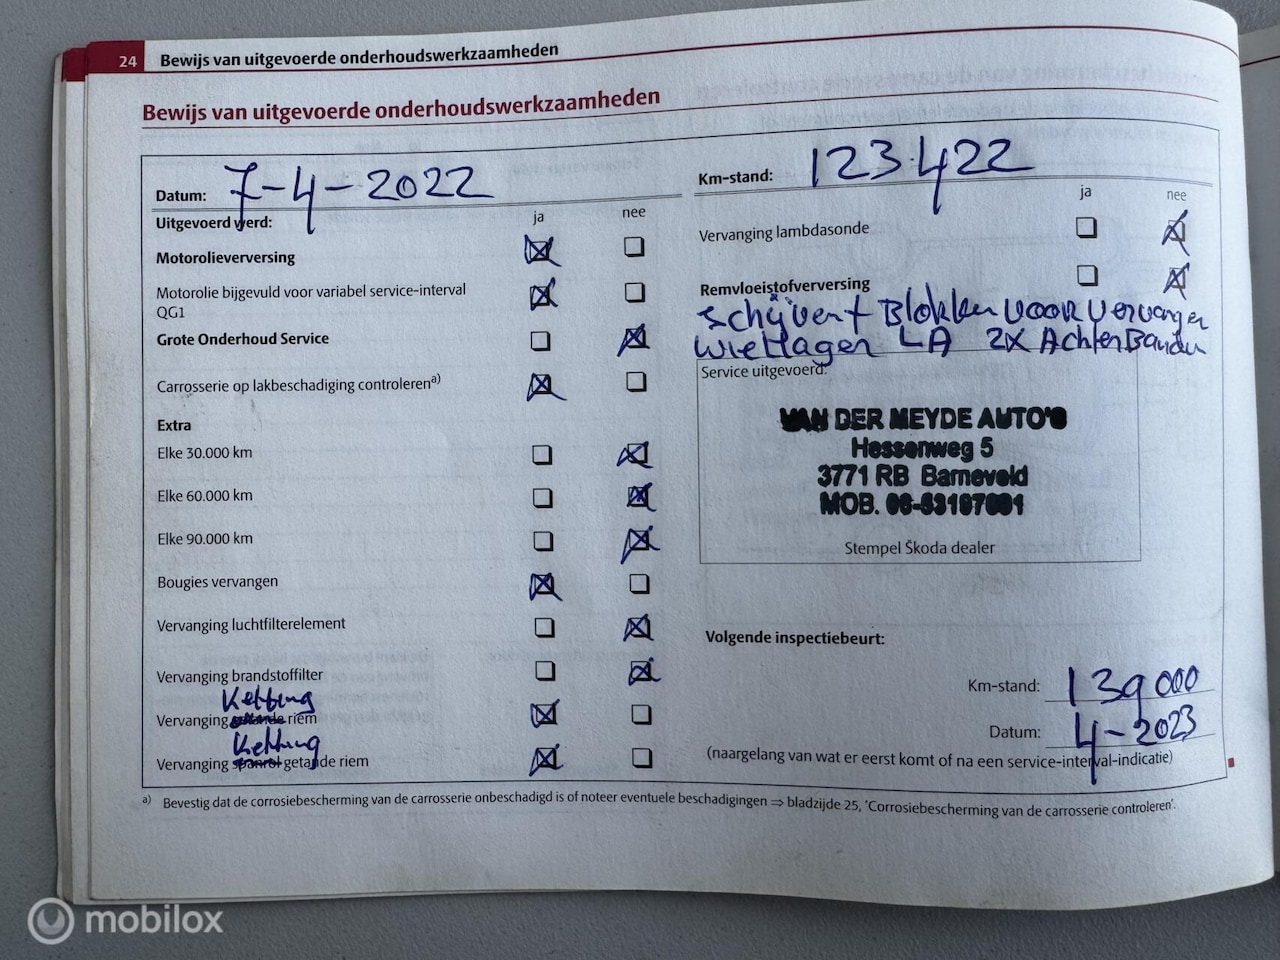 24 Bewijs van uitgevoerde onderhoudswerkzaamheden
Bewijs van uitgevoerde onderhoudswerkzaamheden
Datum: 7-4-2022
Uitgevoerd werd:
ja nee
Motorolieverversing
Motorolie bijgevuld voor variabel service-interval
QG1
Grote Onderhoud Service
Carrosserie op lakbeschadiging controleren a)
Extra
Elke 30.000 km
Elke 60.000 km
Elke 90.000 km
Bougies vervangen
Vervanging luchtfilterelement
Vervanging brandstoffilter
Ketting
Vervanging getande riem
Ketting
Vervanging spanrol getande riem
Km-stand: 123.422
ja nee
Vervanging lambdasonde
Remvloeistofverversing
Schijven + Blokken voor vervangen
Wiellager LA 2x Achter Banden
Service uitgevoerd:
VAN DER MEYDE AUTO'S
Hessenweg 5
3771 RB Barneveld
MOB.
Stempel Škoda dealer
Volgende inspectiebeurt:
Km-stand: 139000
Datum: 4-2023
(naargelang van wat er eerst komt of na een service-interval-indicatie)
a) Bevestig dat de corrosiebescherming van de carrosserie onbeschadigd is of noteer eventuele beschadigingen ⇒ bladzijde 25, 'Corrosiebescherming van de carrosserie controleren'.
mobilox